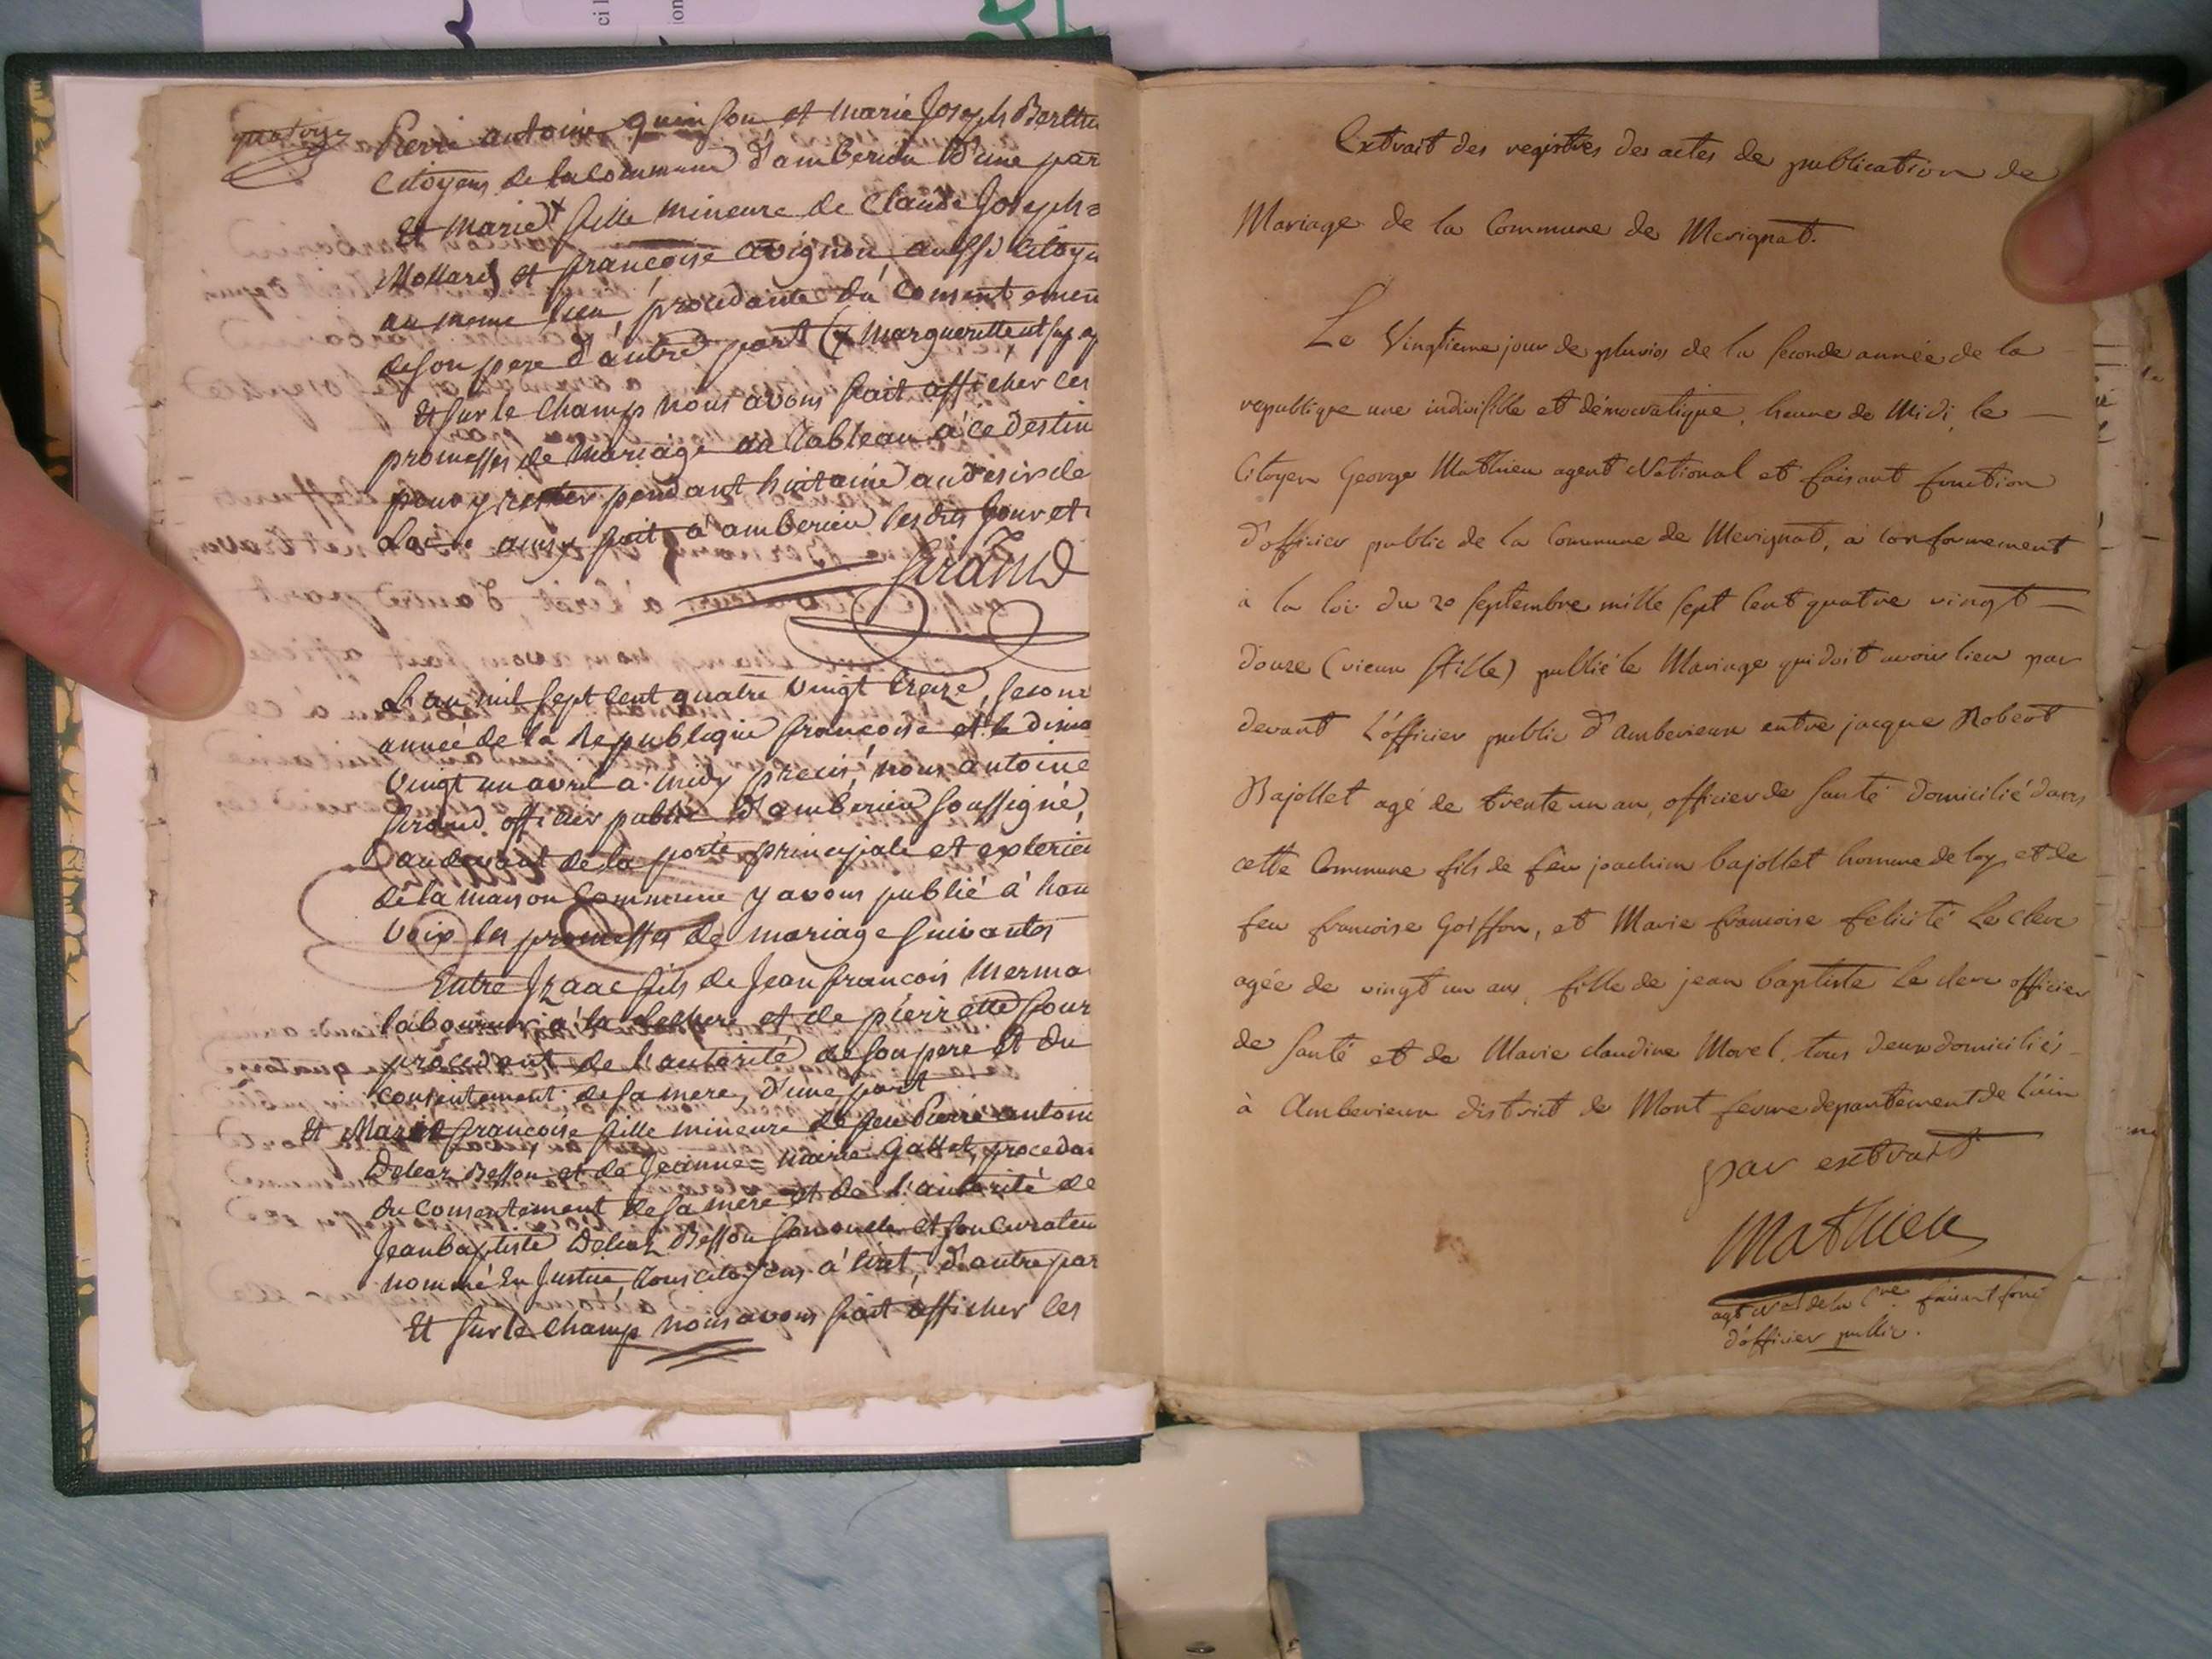 quatorze
Pierre antoine quinson et marie Joseph Berthe
Citoyens de la commune d'amberieu d'une par
Et Marie + fille mineure de Claude Joseph =
Mollard et françoise avignon, aussi Citoye
au meme lieu, procedante du consentemen
de son pere d'autre part (x Margueritte
Et sur le Champ nous avons fait afficher les
promesses de Mariage au tableau à ce destin
pour y rester pendant huitaine au desir de
Loi = ainsy fait à amberieu lesdits jour et
Girand
L'an mil sept Cent quatre vingt treize, secon
année de la Republique françoise et le dima
vingt un avril à midy precis, nous antoine
Girand officier public d'amberieu soussigné,
au devant de la porte principale et exterieu
de la maison Commune y avons publié à hau
voix les promesses de mariage suivantes
Entre Izaac fils de Jean françois Merma
laboureur à la et de pierrette four
procedant de l'autorité de son pere et du
consentement de sa mere, d'une part
Et Marie françoise fille mineure de feu Pierre antoine
Besson et de Jeanne = marie Gallet, procedan
du consentement de sa mere et de l'autorité de
Jean baptiste Besson son oncle et son curateu
nommé En Justice, tous citoyens à tiret, d'autre par
Et sur le champ nous avons fait afficher les
ci l
ion
Extrait des registres des actes de publication de
Mariage de la Commune de Merignat.
Le Vingtieme jour de pluvios de la seconde année de la
republique une indivisible et démocratique, heure de Midi, le
Citoyen George Mathieu agent National et faisant fonction
d'officier public de la Commune de Merignat, a conformement
à la loi du 20 septembre mille sept cent quatre vingt
douze (vieux stille) publié le Mariage qui doit avoir lieu par
devant L'officier public d'amberieux entre jacque Robert
Bajollet agé de trente un an, officier de santé domicilié dans
cette Commune fils de feu joachim bajollet homme de loy et de
feu francoise Goiffon, et Marie francoise felicité Le Clerc
agée de vingt un an, fille de jean baptiste Le clerc officier
de santé et de Marie claudine Morel, tous deux domiciliés
à Amberieux district de Mont ferme departement de l'ain
par extrait
Mathieu
agt nal de la Cne faisant fonc
d'officier public.